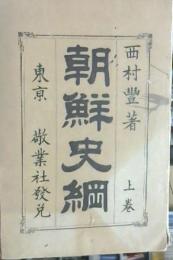 西村豐著
朝鮮史綱
上巻
東京 敬業社發兌